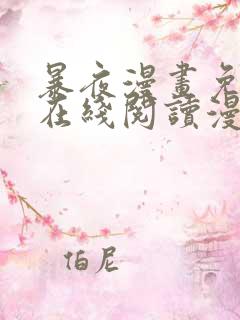 暴夜漫畫免
在綫閱讀漫
伯尼